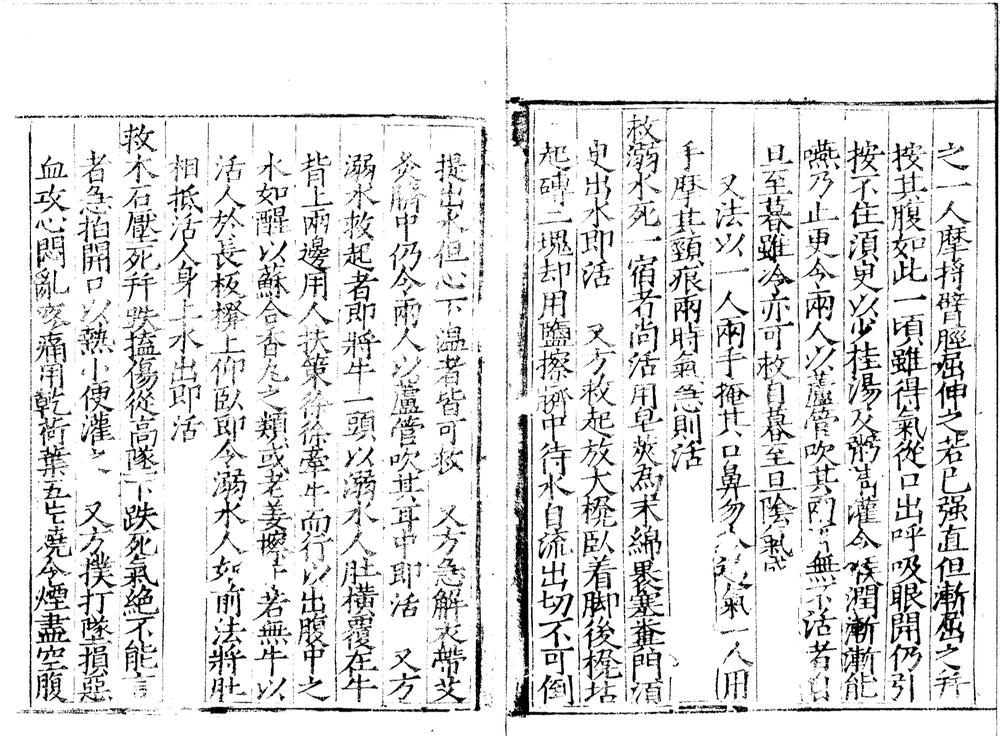 之一人摩捋臂脛屈伸之若已强直但漸屈之幷
按其腹如此一頃雖得氣從口出呼吸眼開仍引
按不住須臾以少桂湯及粥清灌令喉潤漸漸能
嚥乃止更令兩人以蘆管吹其兩耳無不活者自
旦至暮雖冷亦可救自暮至旦陰氣盛
又法以一人兩手掩其口鼻勿令透氣一人用
手摩其頸痕兩時氣急則活
救溺水死一宿者尚活用皂莢為末綿裹塞糞門須
臾出水即活　又方救起放大櫈臥着脚後櫈站
起磚二塊却用鹽擦臍中待水自流出切不可倒
提出水但心下温者皆可救　又方急解衣帶艾
灸臍中仍令兩人以蘆管吹其耳中即活　又方
溺水救起者即將牛一頭以溺水人肚橫覆在牛
背上兩邊用人扶策徐徐牽牛而行以出腹中之
水如醒以蘇合香丸之類或老姜擦牙若無牛以
活人於長板櫈上仰臥即令溺水人如前法將肚
相抵活人身上水出即活
救木石壓死幷跌搕傷從高墜下跌死氣絕不能言
者急拍開口以熱小便灌之　又方撲打墜損惡
血攻心悶亂疼痛用乾荷葉五片燒令煙盡空腹